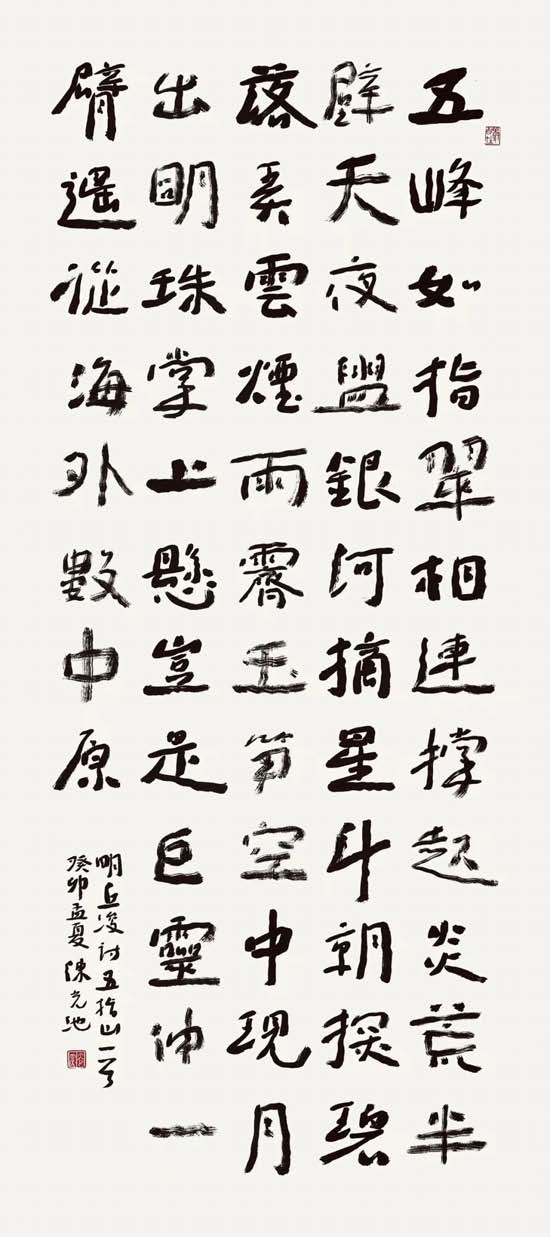 五峰如指翠相連撑起炎荒半
壁天夜盥銀河摘星斗朝探碧
落弄雲煙雨霽玉笋空中現月
出明珠掌上懸豈是巨靈伸一
臂遥從海外數中原
明丘浚詩五指山一首
癸卯孟夏陳光